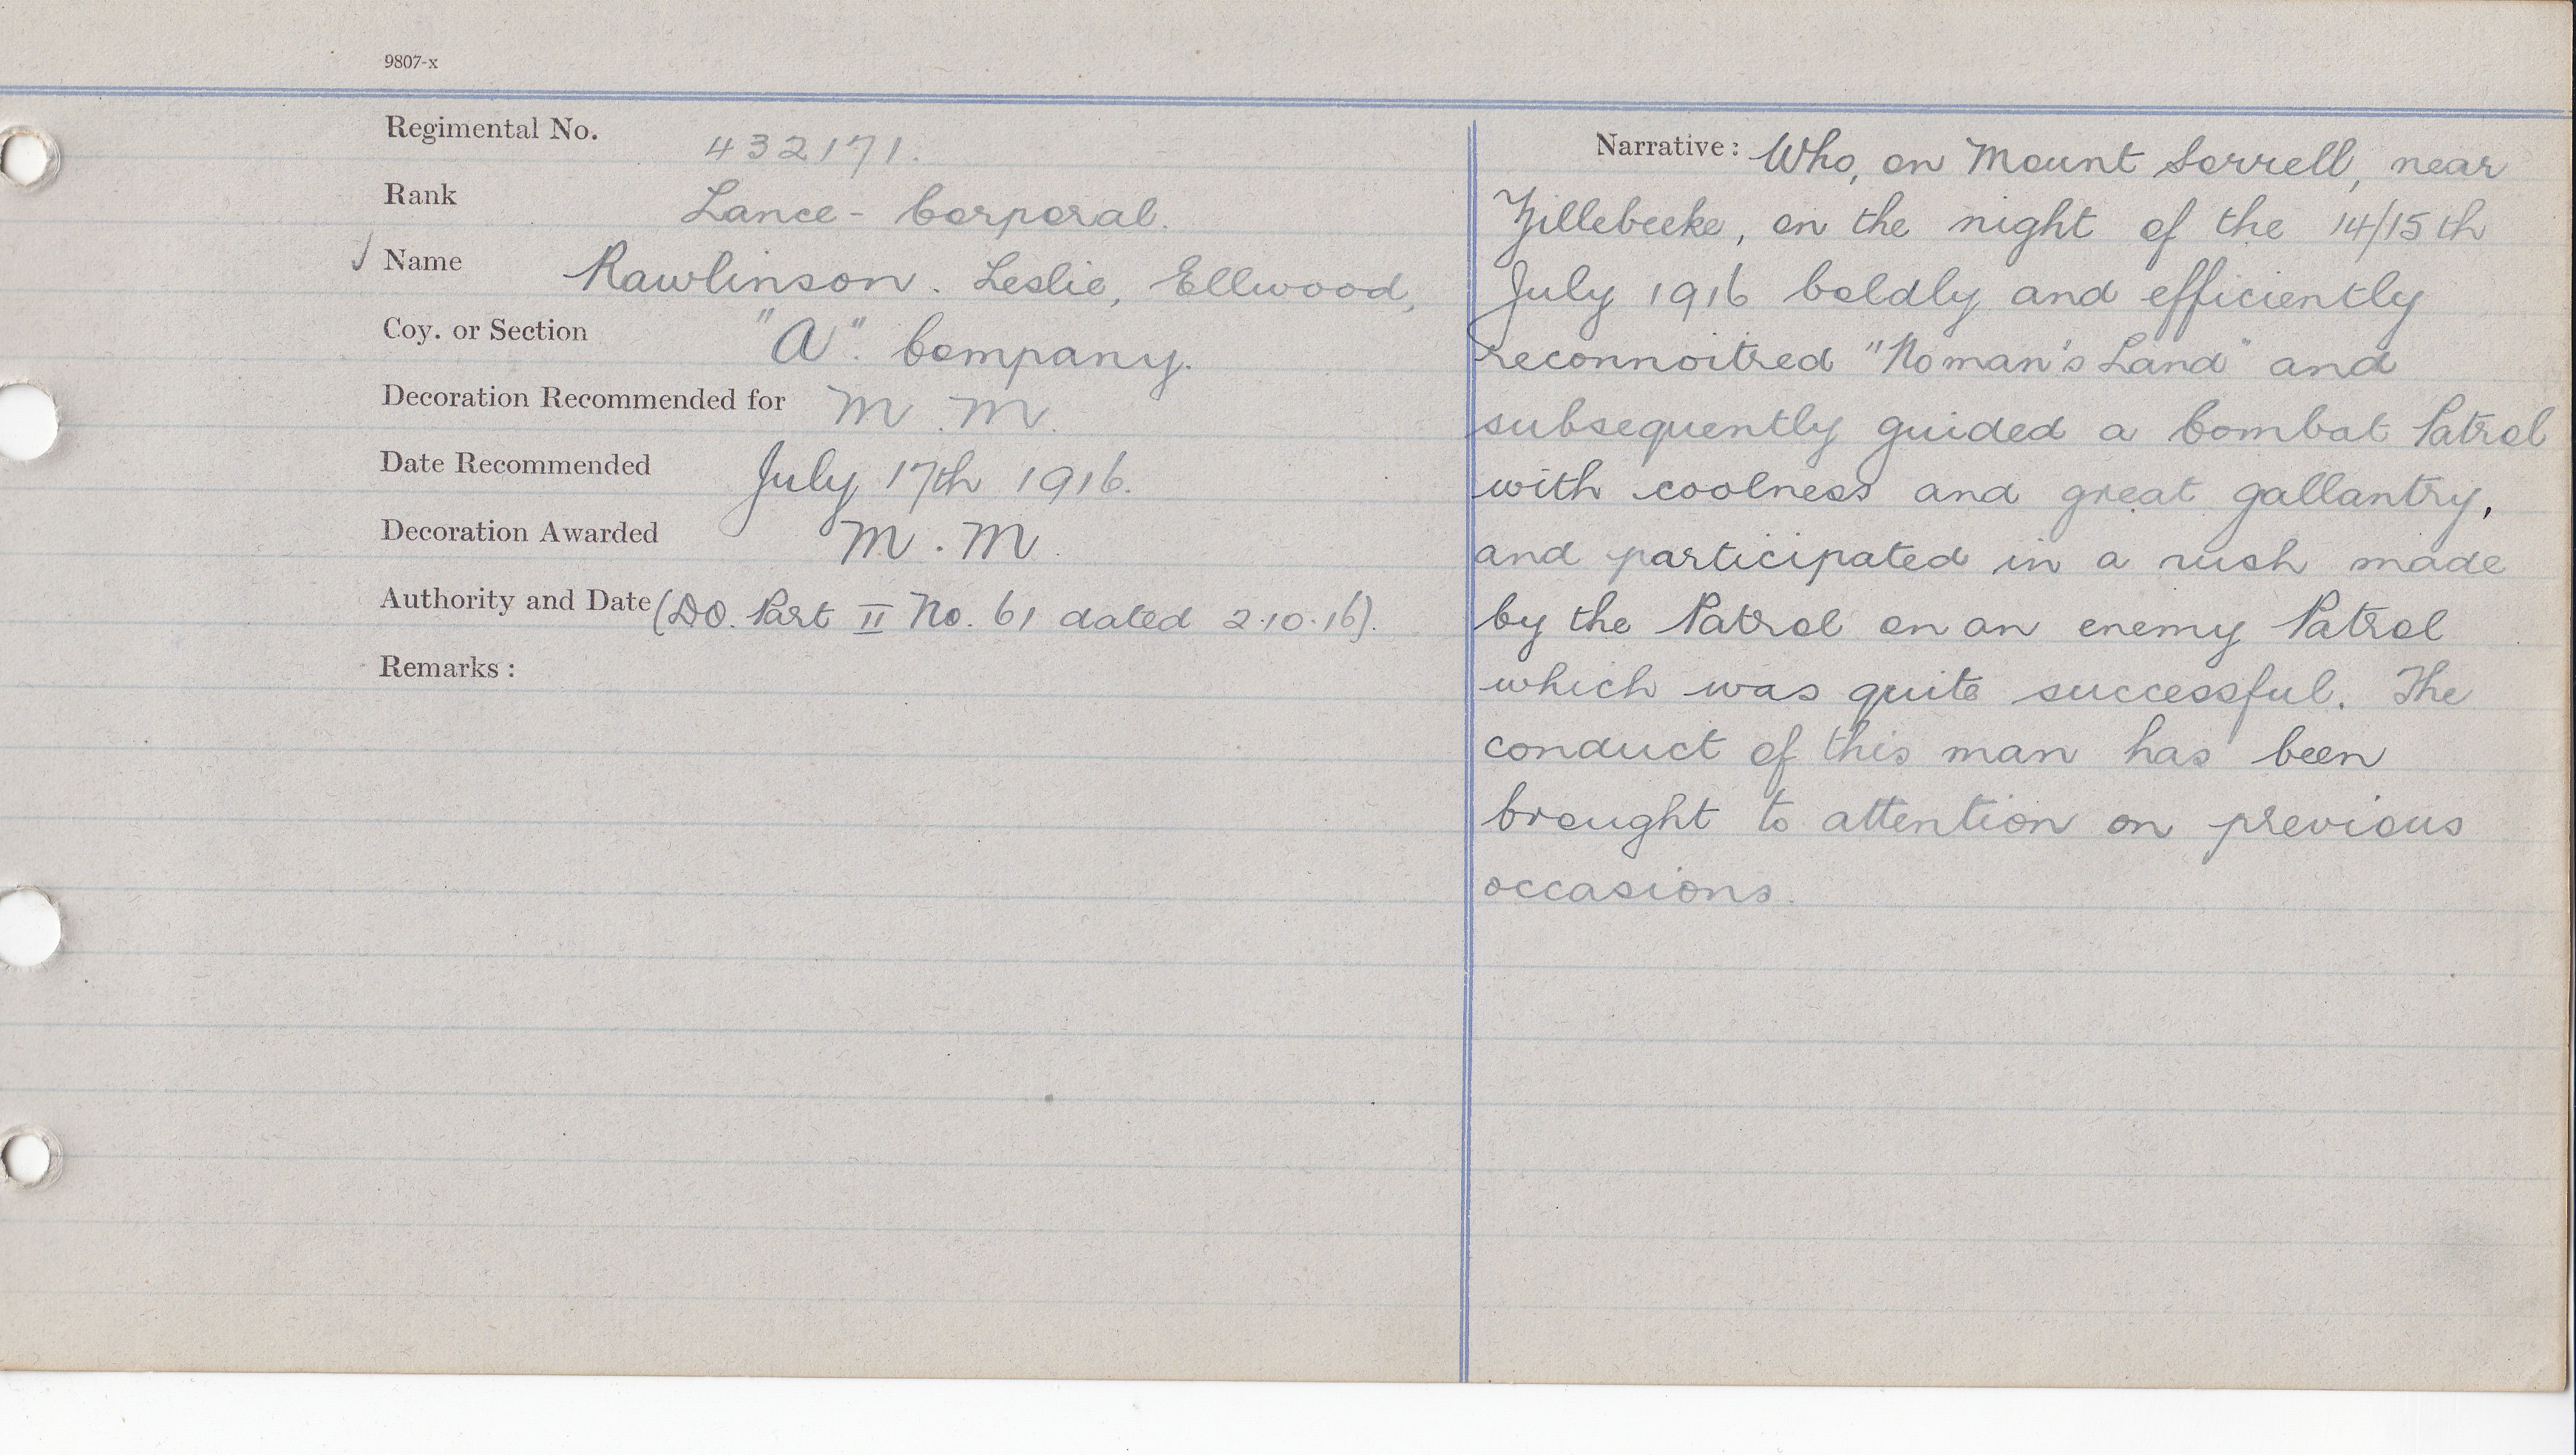 9807-x
Regimental No. 432171.
Rank Lance-Corporal.
√ Name Rawlinson. Leslie, Ellwood,
Coy. or Section "A". Company.
Decoration Recommended for M.M.
Date Recommended July 17th 1916.
Decoration Awarded M.M.
Authority and Date (DO. Part II No. 61 dated 2.10.16).
Remarks:
Narrative: Who, on Mount Sorrell, near
Zillebeeke, on the night of the 14/15th
July 1916 boldly and efficiently
reconnoitred "No man's Land" and
subsequently guided a Combat Patrol
with coolness and great gallantry,
and participated in a rush made
by the Patrol on an enemy Patrol
which was quite successful. The
conduct of this man has been
brought to attention on previous
occasions.